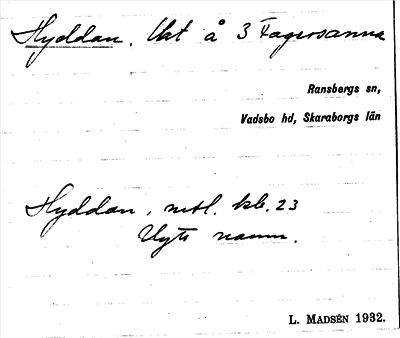 Hyddan. Ukt å 3 Fagersanna
Ransbergs sn,
Vadsbo hd, Skaraborgs län
Hyddan, mtl. kb. 23
namn.
L. MADSÉN 1932.